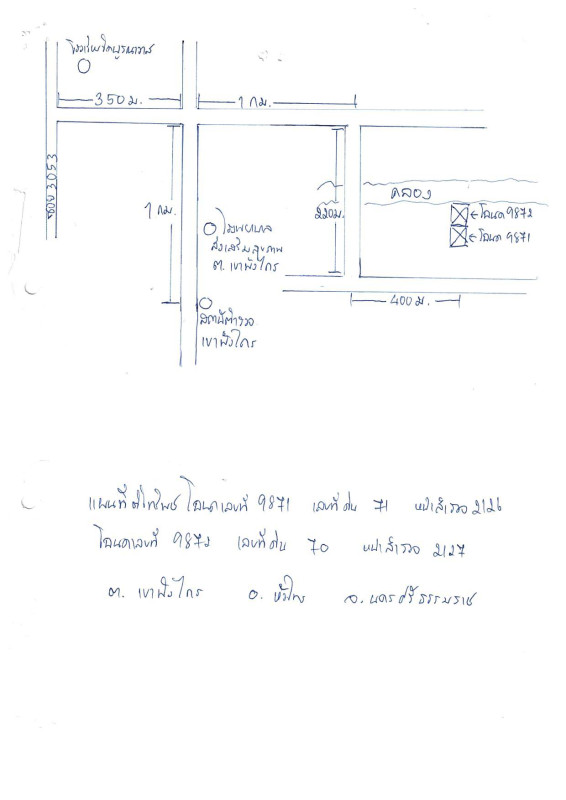 350 ม.
1 กม.
ซอย 3053
1 กม.
220ม.
คลอง
← โฉนด 9872
← โฉนด 9871
โรงพยาบาล
ส่งเสริมสุขภาพ
ต. เขาพังไกร
400 ม.
สถานีตำรวจ
เขาพังไกร
แผนที่ โฉนดเลขที่ 9871 เลขที่ดิน 71 หน้าสำรวจ 2126
โฉนดเลขที่ 9872 เลขที่ดิน 70 หน้าสำรวจ 2127
ต. เขาพังไกร อ. หัวไทร จ. นครศรีธรรมราช